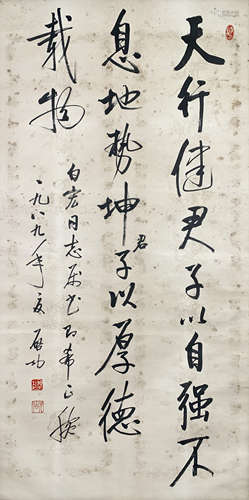 天行健君子以自强不
息地势坤君子以厚德
载物
白宏同志属书即希正腕
一九八九年夏 启功